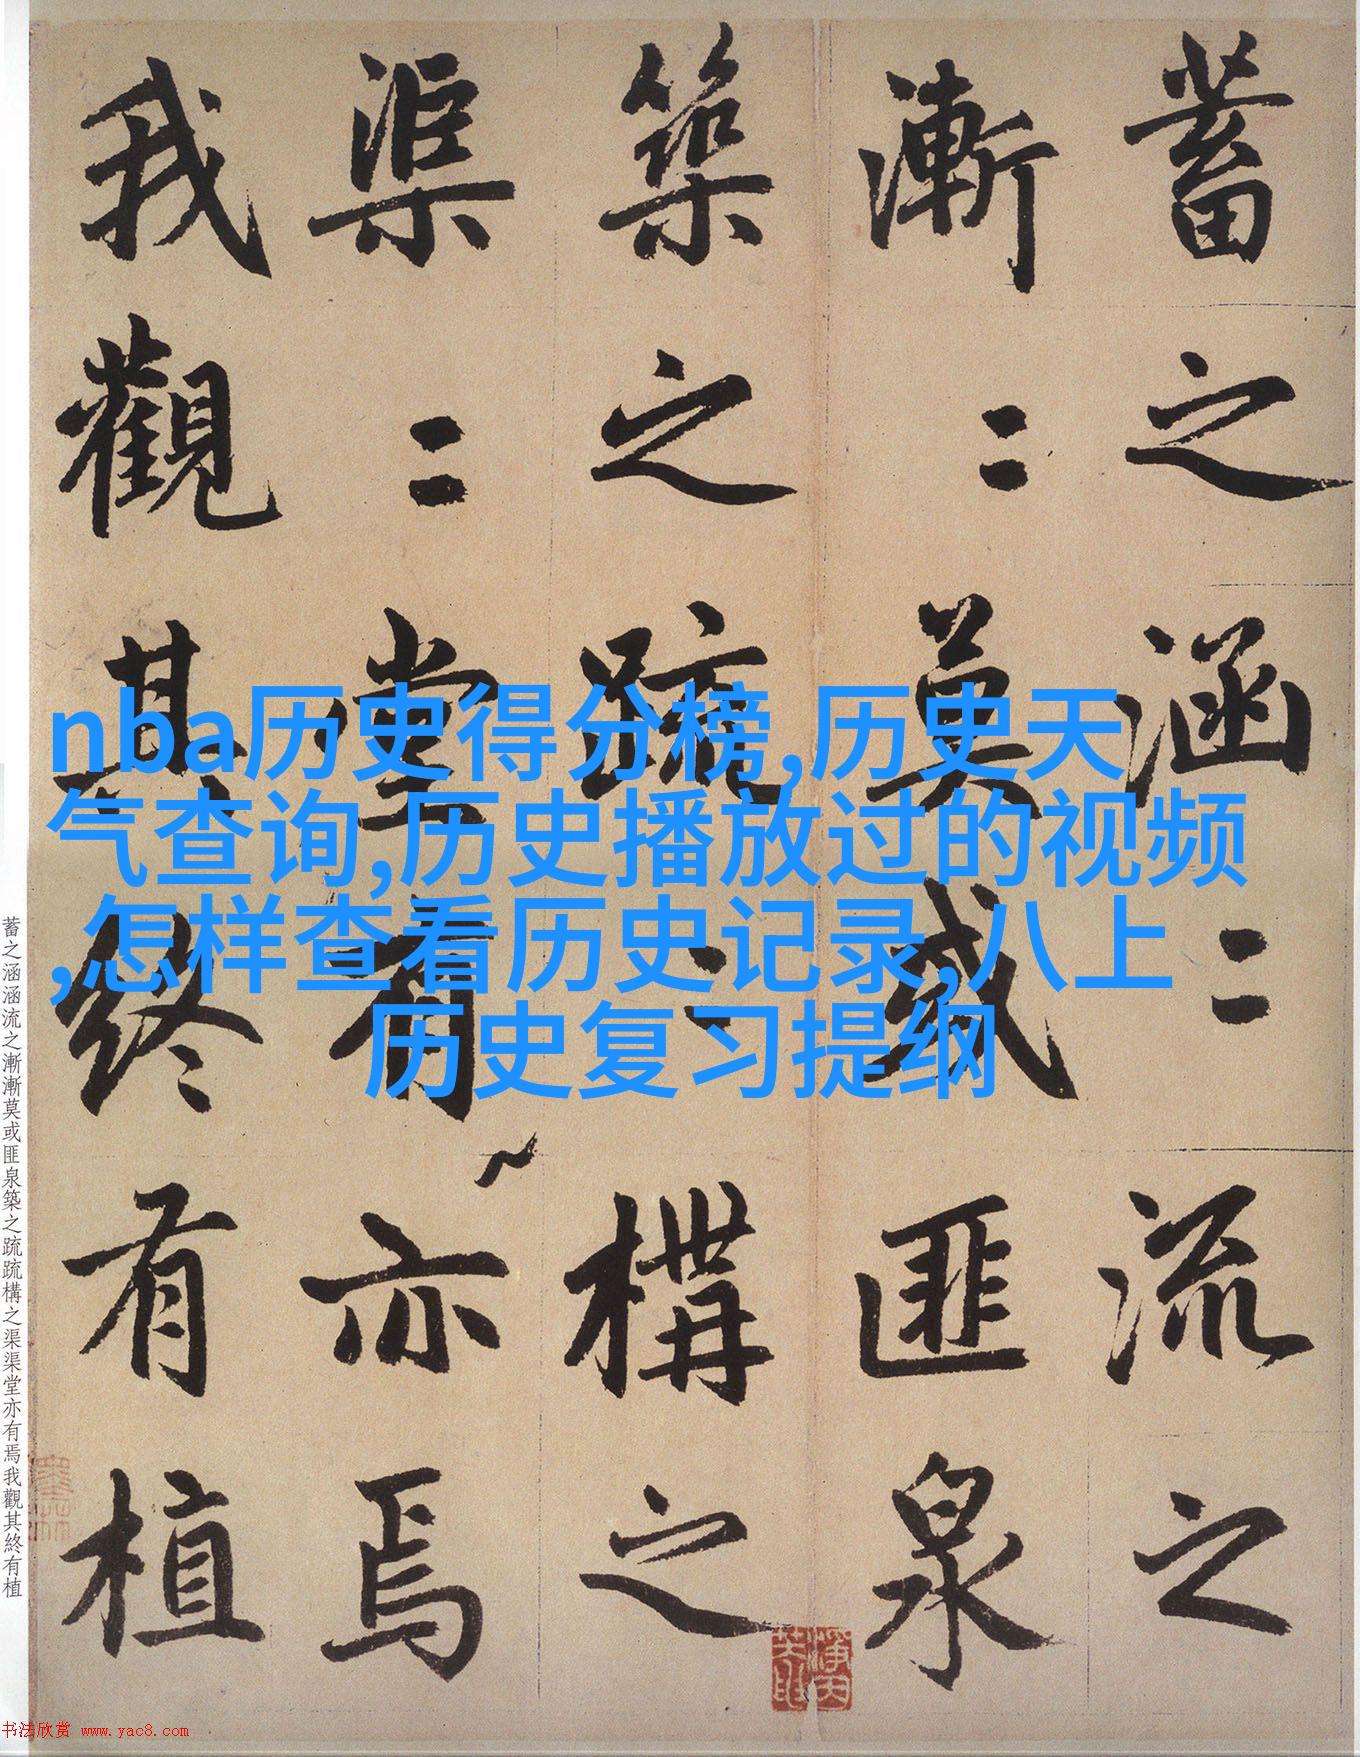 蓄之涵二流之
漸二莫或匪泉
築之疏二構之
渠二堂有亦焉
我觀其終有植
nba历史得分榜,历史天
气查询,历史播放过的视频
,怎样查看历史记录,八上
历史复习提纲
蓄之涵涵流之漸漸莫或匪泉築之疏疏構之渠渠堂亦有焉我觀其終有植
书法欣赏 www.yac8.com